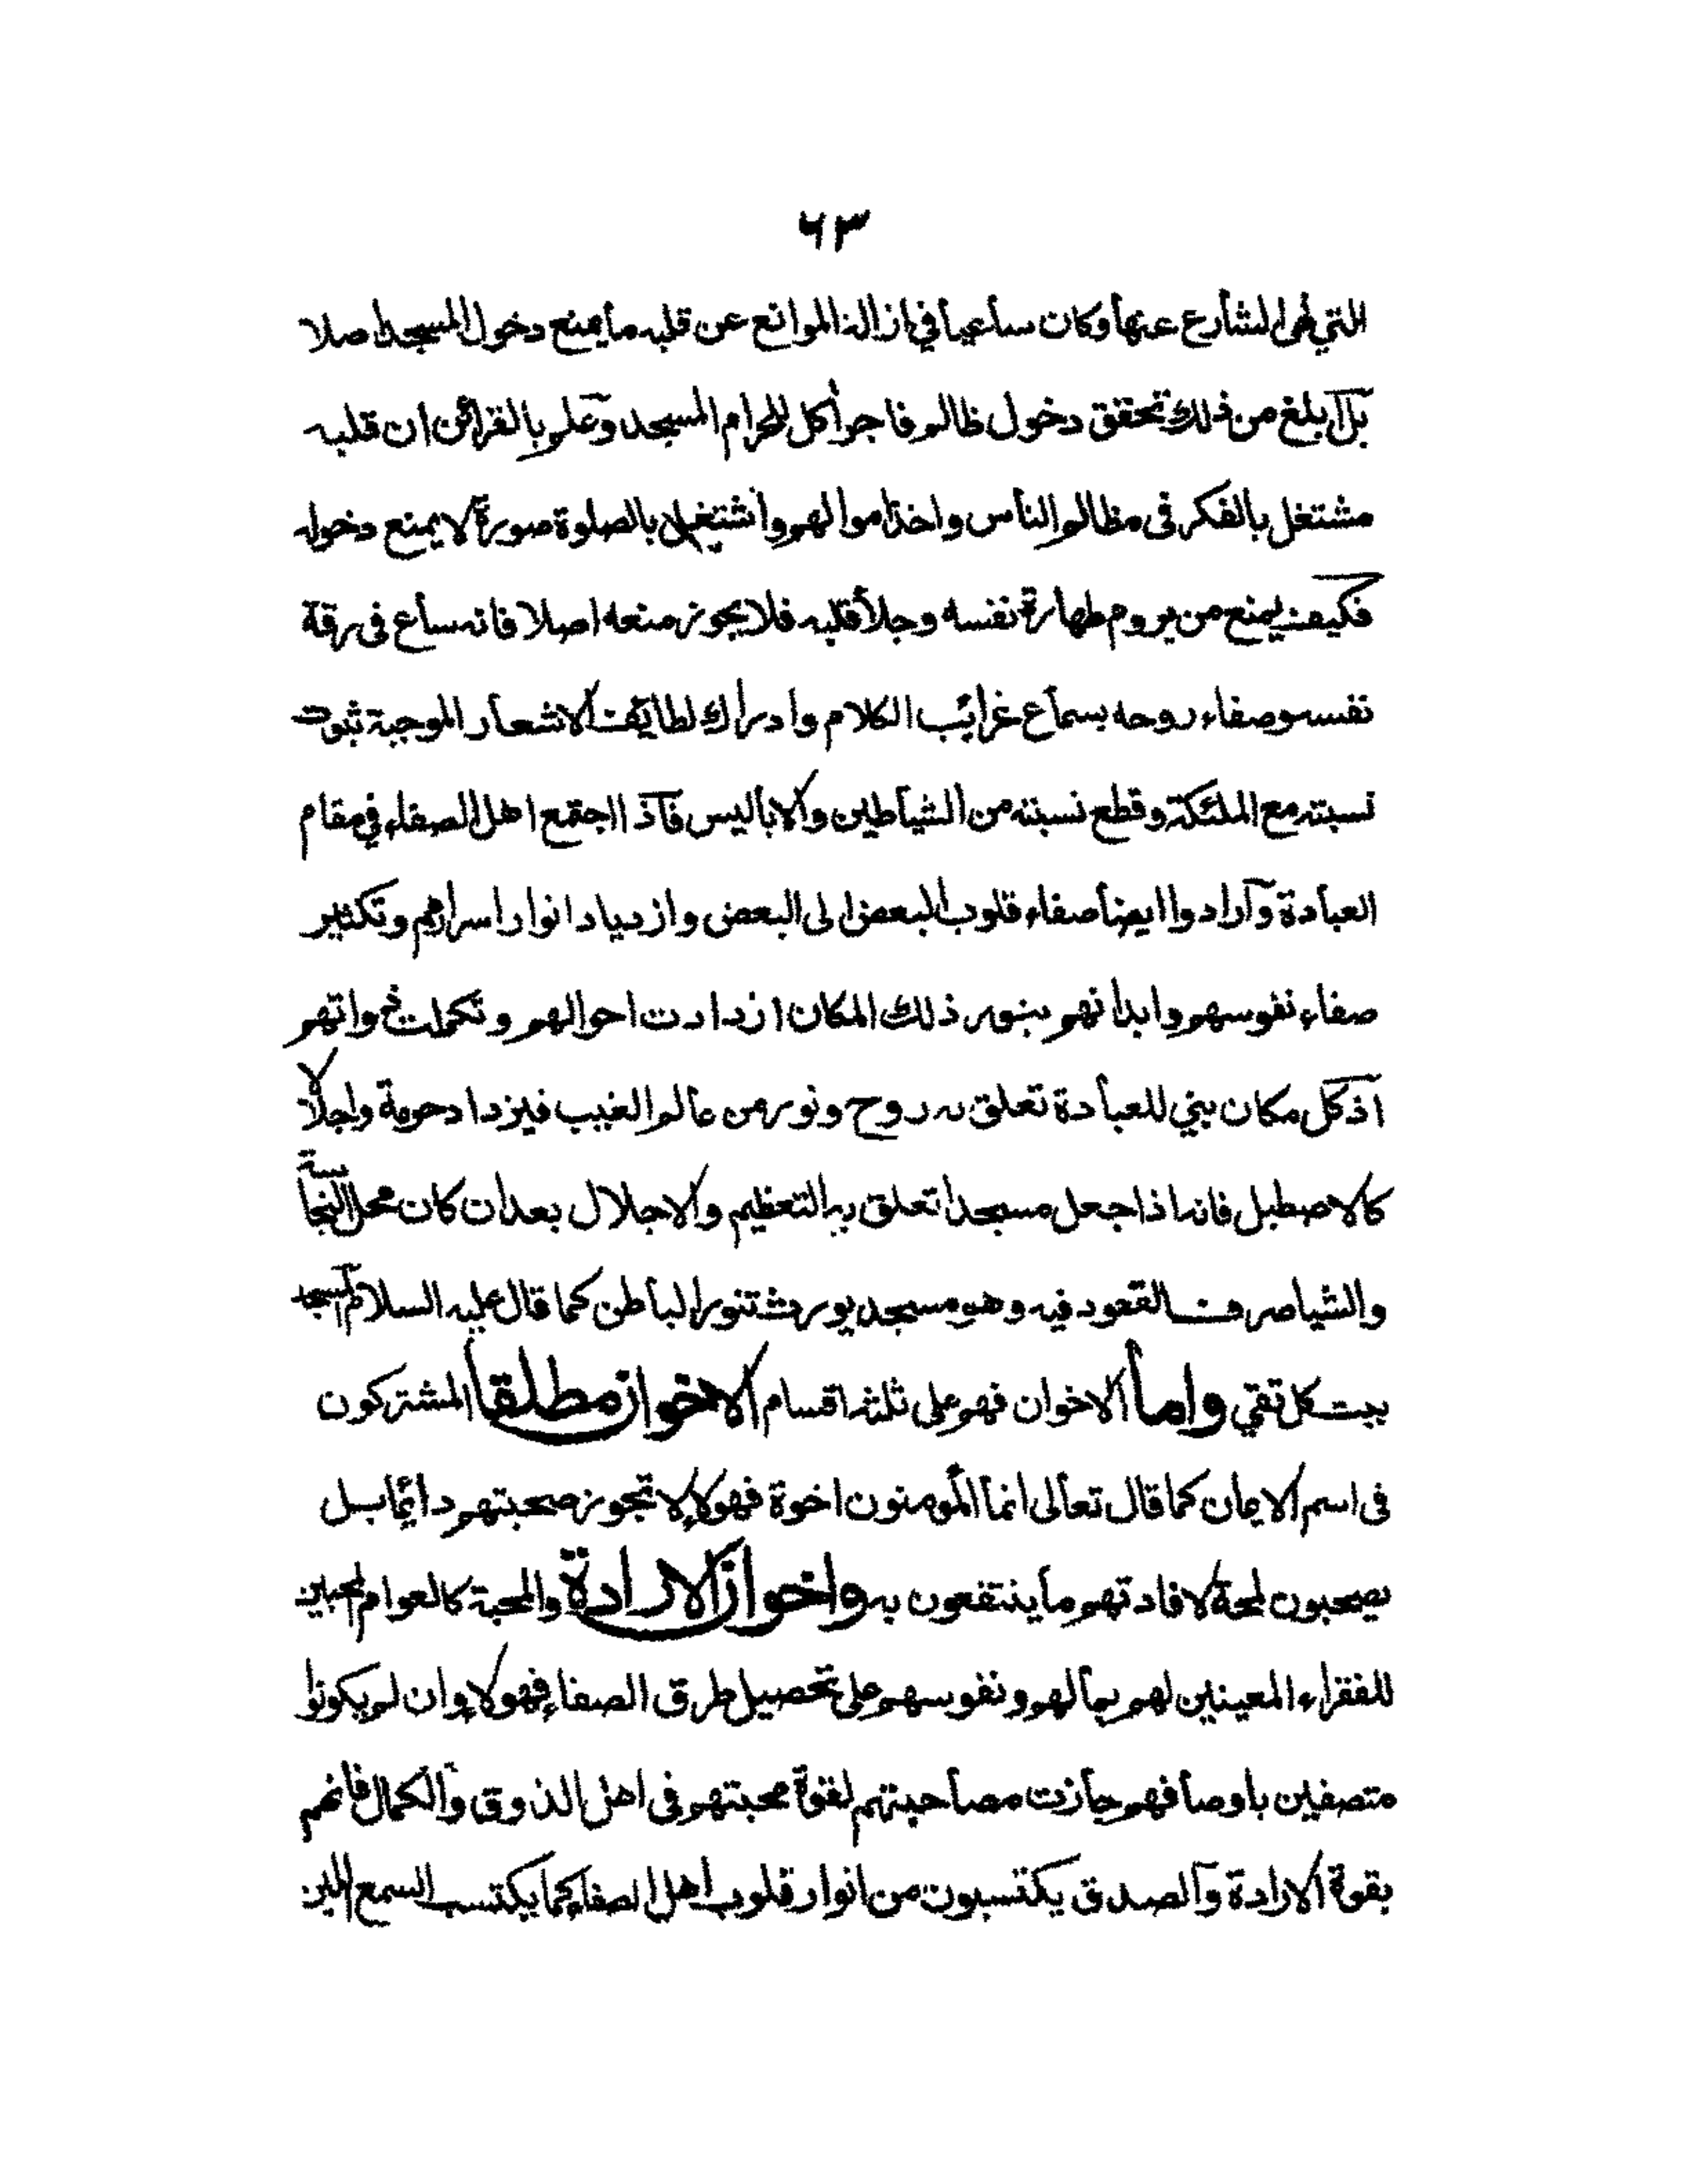 ٦٣
التي نهى الشارع عنها وكان ساعيا في ازالة الموانع عن قلبه ما يمنع دخول المسجد اصلا
بل ابلغ من ذلك تحقق دخول ظالم فاجر آكل للحرام المسجد وعلم بالقرائن ان قلبه
مشتغل بالفكر في مظالم الناس واخذ اموالهم واشتغل بالصلوة صورة لا يمنع دخوله
فكيف يمنع من يروم طهارة نفسه وجلأ قلبه فلا يجوز منعه اصلا فانه ساع في رقة
نفسه وصفاء روحه بسماع غرايب الكلام وادراك لطايف الاشعار الموجبة ثبوت
نسبته مع الملئكة وقطع نسبته من الشياطين والاباليس فاذا اجتمع اهل الصفاء في مقام
العبادة وارادوا ايضا صفاء قلوب البعض الى البعض وازدياد انوار اسرارهم وتكثير
صفاء نفوسهم وابدانهم بنور ذلك المكان ازدادت احوالهم وتكملت ذواتهم
اذ كل مكان بني للعبادة تعلق به روح ونور من عالم الغيب فيزداد حرمة واجلالا
كالاصطبل فانه اذا جعل مسجدا تعلق به التعظيم والاجلال بعد ان كان محل النجاسة
والشيا صرف القعود فيه وهو مسجد يورث تنور الباطن كما قال عليه السلام المسجد
بيت كل تقي واما الاخوان فهم على ثلثة اقسام الاخوان مطلقا المشتركون
في اسم الايمان كما قال تعالى انما المومنون اخوة فهولاء لا تجوز صحبتهم دائما بل
يصحبون لمحة لافادتهم ما ينتفعون به واخوان الارادة والمحبة كالعوام المحبين
للفقراء المعينين لهم بمالهم ونفوسهم على تحصيل طرق الصفاء فهولاء وان لم يكونوا
متصفين باوصافهم جازت مصاحبتهم لقوة محبتهم في اهل الذوق والكمال فانهم
بقوة الارادة والصدق يكتسبون من انوار قلوب اهل الصفاء كما يكتسب السمع اللين